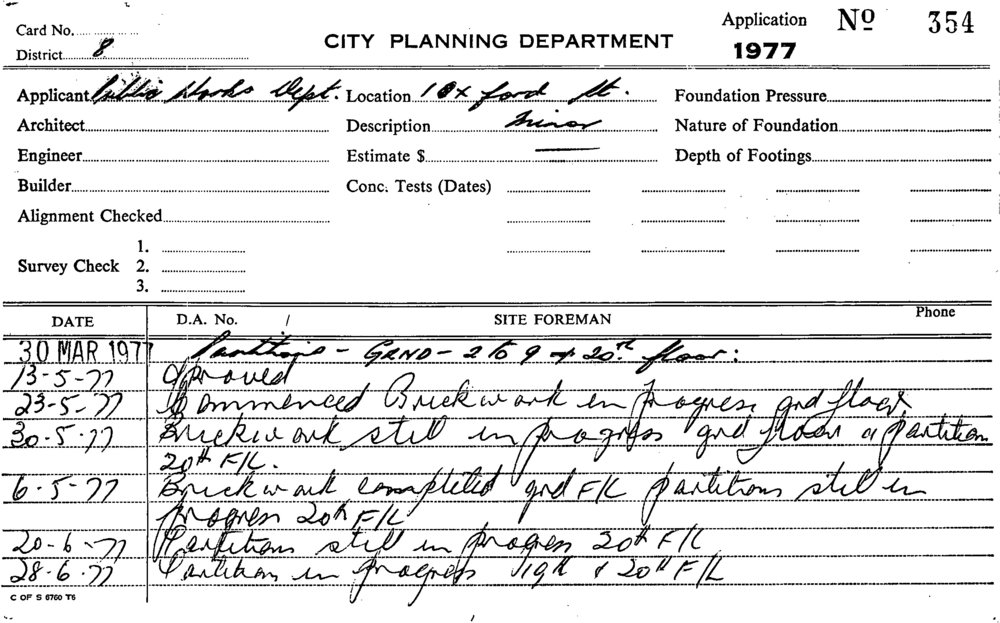 Card No.
District 8
CITY PLANNING DEPARTMENT
Application Nº 354
1977
Applicant Public Works Dept. Location 10x ford St. Foundation Pressure
Architect Description Minor Nature of Foundation
Engineer Estimate $ Depth of Footings
Builder Conc. Tests (Dates)
Alignment Checked
1.
Survey Check 2.
3.
DATE D.A. No. SITE FOREMAN Phone
30 MAR 1977 - GRND - 2 to 9 + 20th floor:
13-5-77 Aproved
23-5-77 Commenced Brickwork in Progress grd floor
30-5-77 Brickwork still in progress grd floor a partition
20th F/L.
6-5-77 Brickwork completed grd F/L partitions still in
progress 20th F/L
20-6-77 Partitions still in progress 20th F/L
28-6-77 Partition in progress 19th & 20th F/L
C OF S 6760 T6